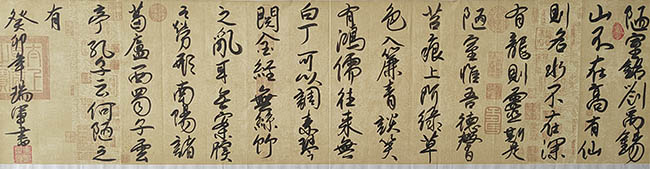 陋室銘劉禹錫
山不在高有仙
則名水不在深
有龍則靈斯是
陋室惟吾德馨
苔痕上階綠草
色入簾青談笑
有鴻儒往來無
白丁可以調素琴
閱金經無絲竹
之亂耳無案牘
之勞形南陽諸
葛廬西蜀子雲
亭孔子云何陋之
有
癸卯年瑞軍書